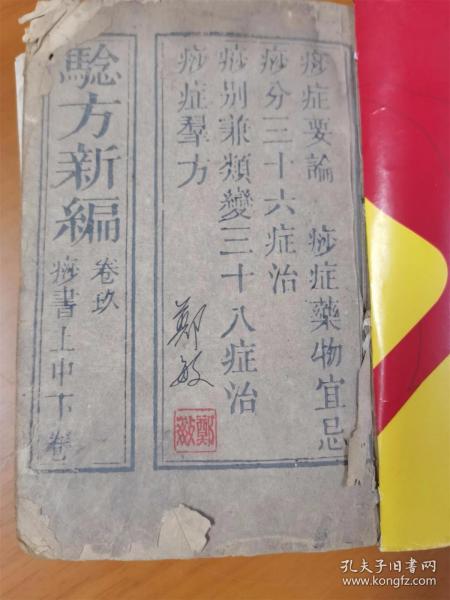 騐方新編
卷玖
痧書上中下卷
痧症要論 痧症藥物宜忌
痧分三十六症治
痧別兼類變三十八症治
痧症羣方
鄭敏
鄭敏
孔夫子旧书网
www.kongfz.com